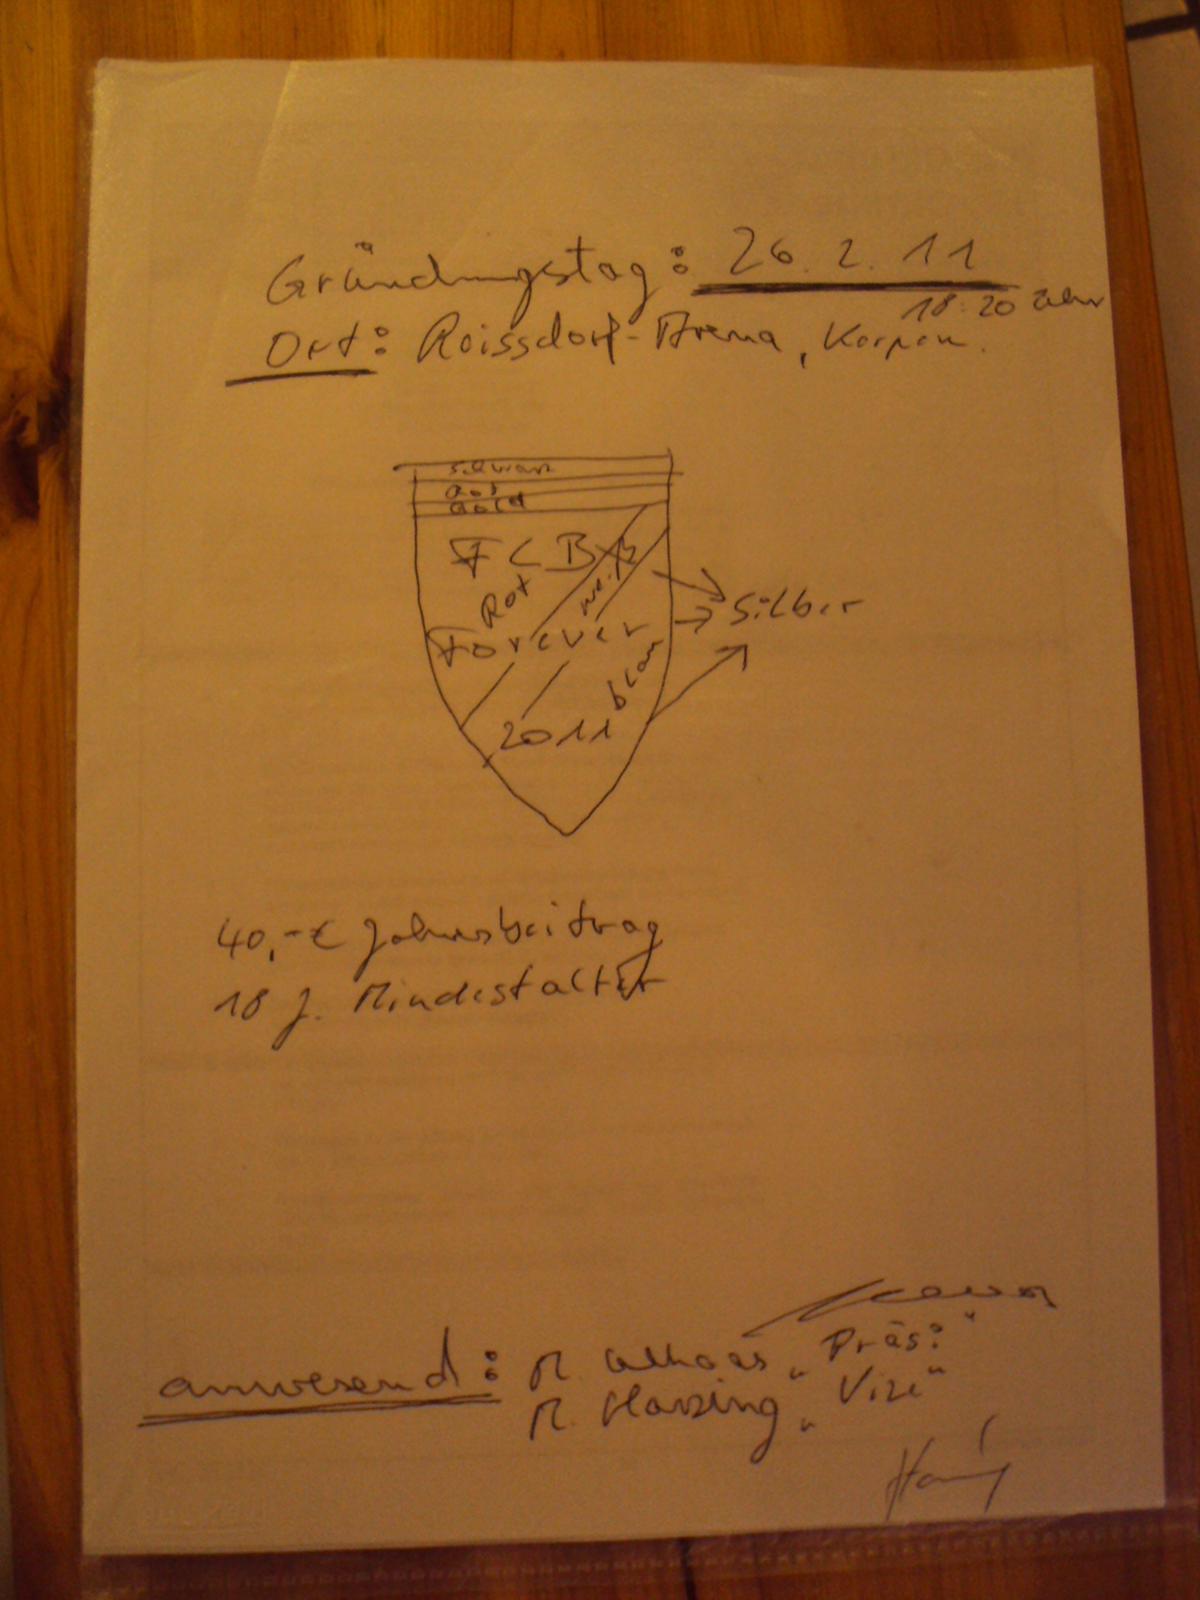 Gründungstag: 26.2.11
18:20 Uhr
Ort: Roissdorf-Arena, Kerpen.
schwarz
Rot
Gold
FCB
Rot
weiß
Silber
Forever
blau
2011
40,-€ Jahresbeitrag
18 J. Mindestalter
anwesend: M. "Präs."
M. Hanzing "Vize"